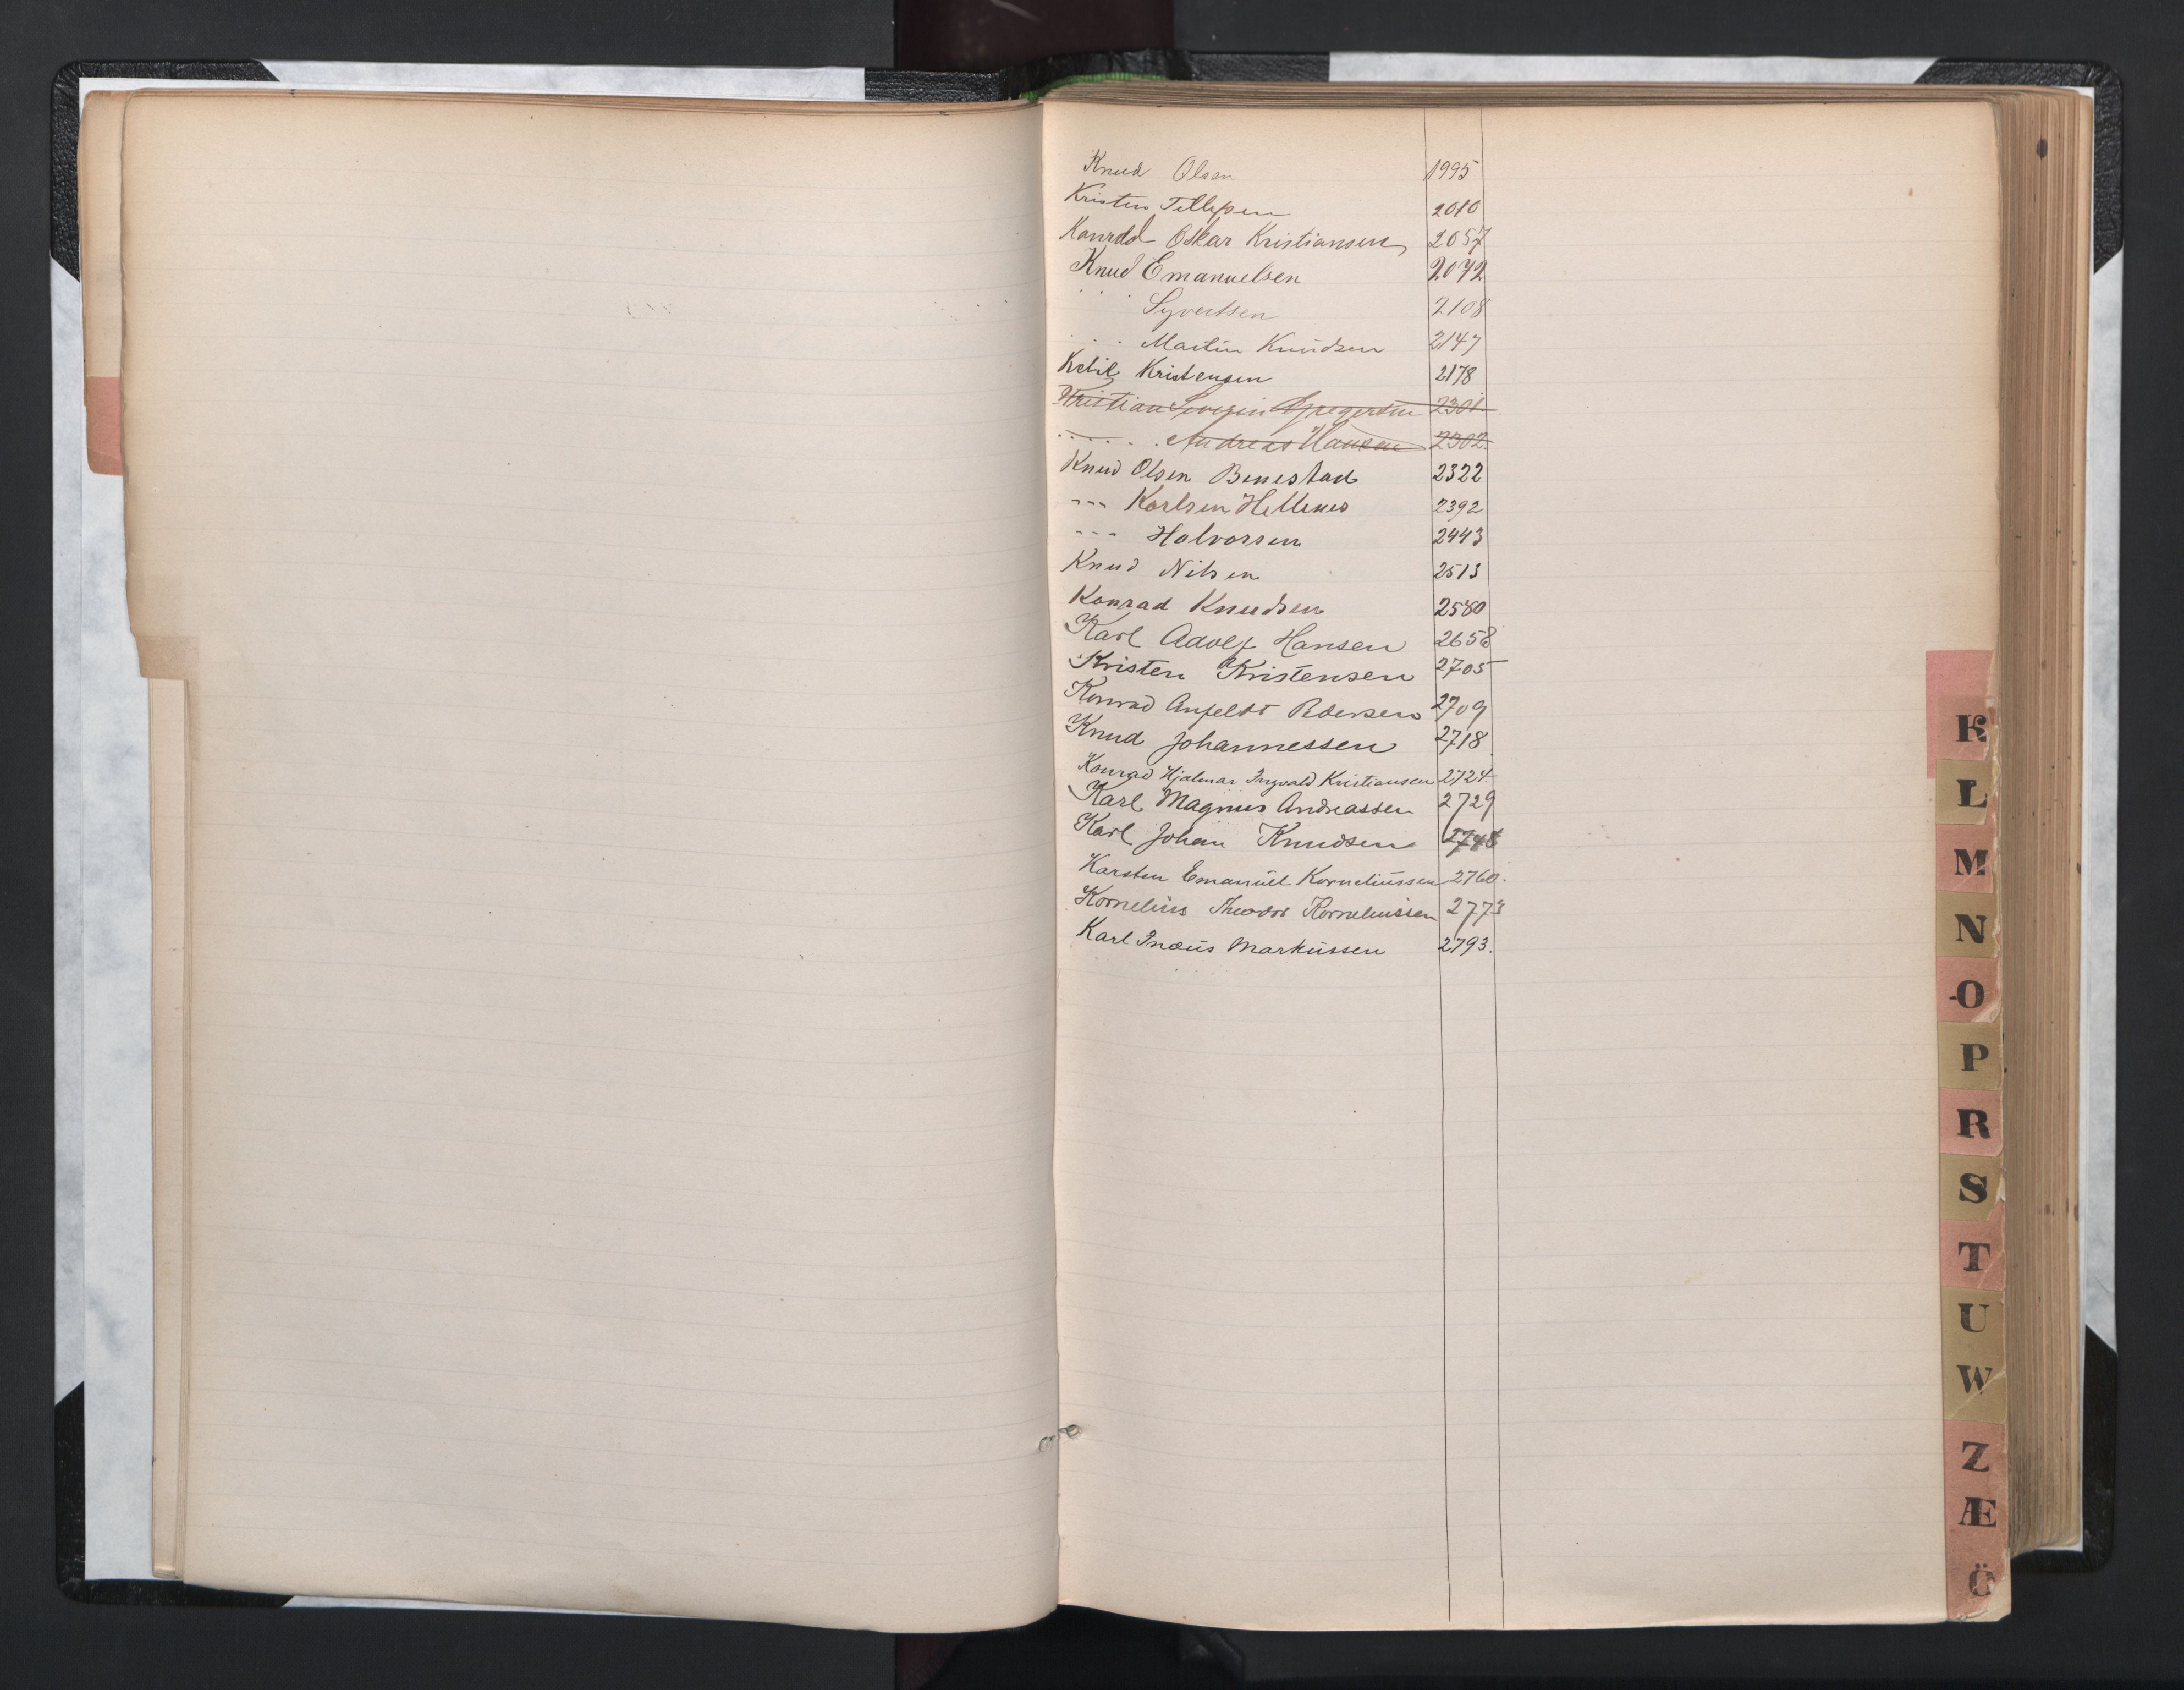 Knud Olsen 1995
Kristen Tellefsen 2010
Konrad Oskar Kristiansen 2057
Knud Emanuelsen 2072
" " Syvertsen 2108
. . . . Martin Knudsen 2147
Ketil Kristensen 2178
Kristian Severin Gregersen 2301.
. . . . . . Andreas Hansen 2302.
Knud Olsen Benestad 2322
--- Karlsen Hellenes 2392
--- Halvorsen 2443
Knud Nilsen 2513
Konrad Knudsen 2580
Karl Adolf Hansen 2658
Kristen Kristensen 2705
Konrad Anfeldt Pedersen 2709
Knud Johannessen 2718
Konrad Hjalmar Ingvald Kristiansen 2724.
Karl Magnus Andreassen 2729
Karl Johan Knudsen 2748
Karsten Emanuel Korneliussen 2760.
Kornelius Theodor Korneliussen 2773
Karl Inæus Markussen 2793.
K
L
M
N
O
P
R
S
T
U
W
Z
Æ
Ö